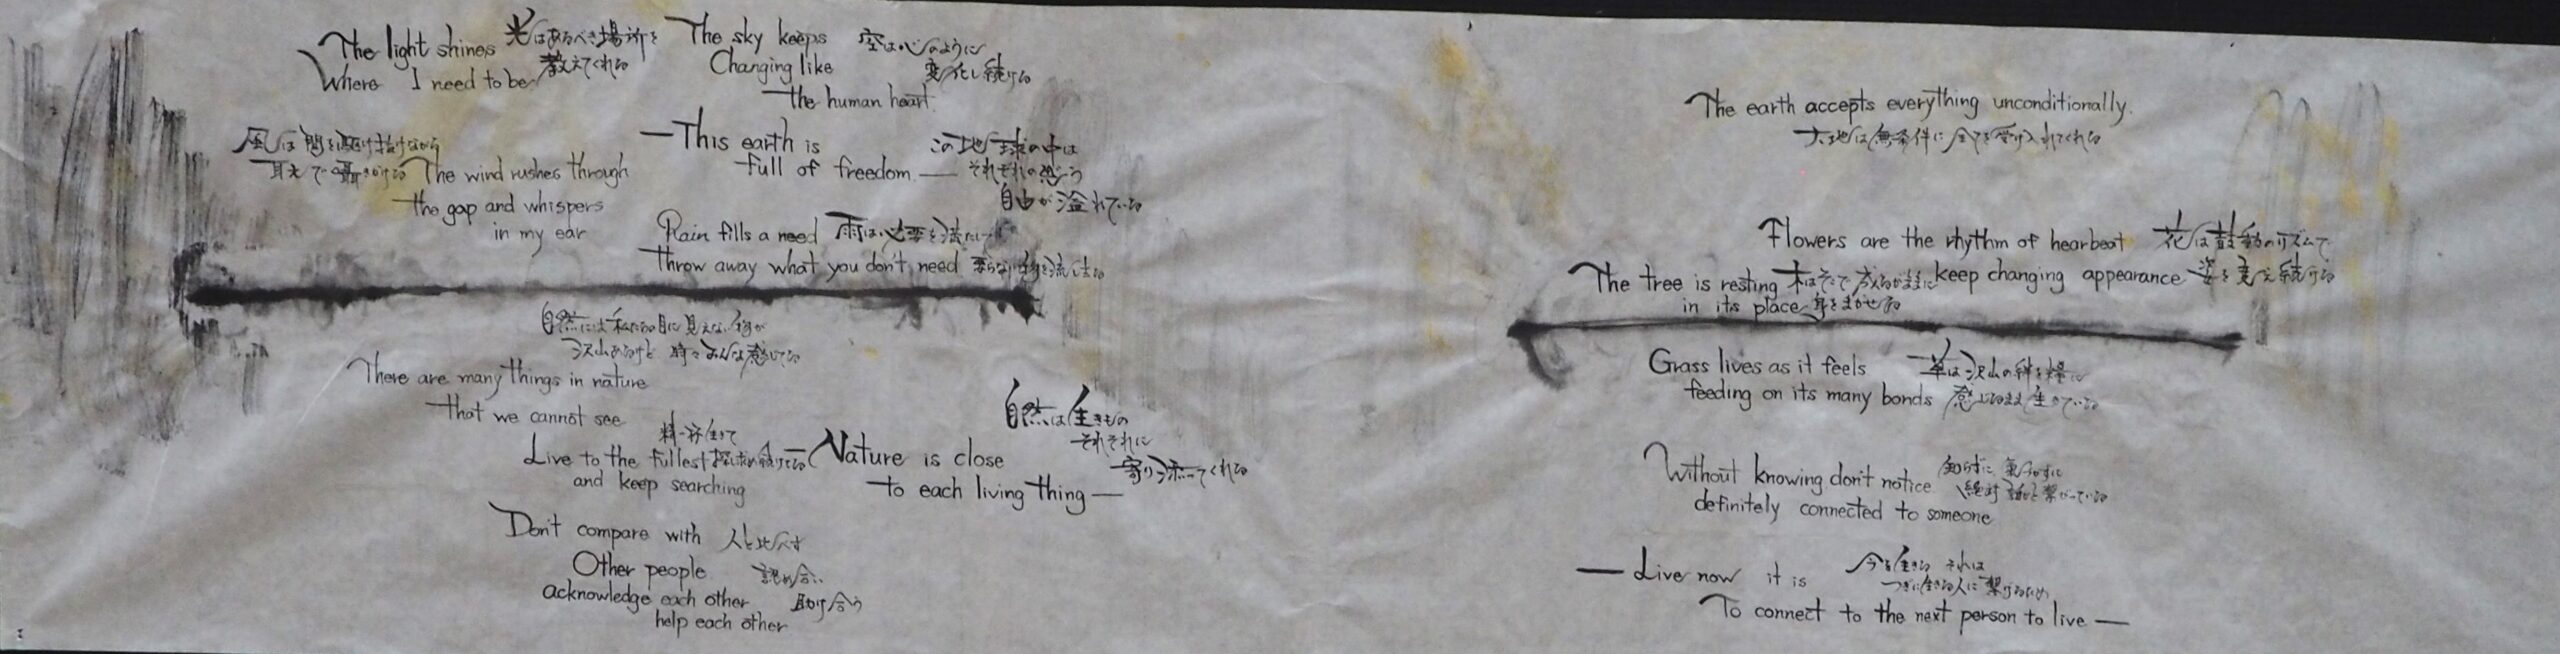 The light shines
Where I need to be
光はあるべき場所を
教えてくれる
The sky keeps
Changing like
the human heart.
空は心のように
変化し続ける
風は間を駆け抜けながら
耳元で囁きかける
The wind rushes through
the gap and whispers
in my ear
—This earth is
full of freedom.—
この地球の中は
それぞれの想う
自由が溢れている
Rain fills a need
throw away what you don't need
雨は必要を満たし
要らない物を流し去る
自然には私たちの目に見えない物が
沢山あるけど 時々みんな感じてる
There are many things in nature
that we cannot see
精一杯生きて
探し求め続けてる
Live to the fullest
and keep searching
自然は生きもの
それぞれに
寄り添ってくれる
Nature is close
to each living thing—
Don't compare with
Other people
acknowledge each other
help each other
人と比べず
認め合い
助け合う
The earth accepts everything unconditionally.
大地は無条件に全てを受け入れてくれる
Flowers are the rhythm of hearbeat
keep changing appearance
花は鼓動のリズムで
姿を変え続ける
The tree is resting
in its place
木はそこで在るがままに
身をまかせる
Grass lives as it feels
feeding on its many bonds
草は沢山の絆を糧に
感じるまま生きている
Without knowing don't notice
definitely connected to someone
知らずに 気づかずに
絶対 誰かと繋がっている
—Live now it is
To connect to the next person to live—
今を生きる それは
つぎに生きる人に繋げるため